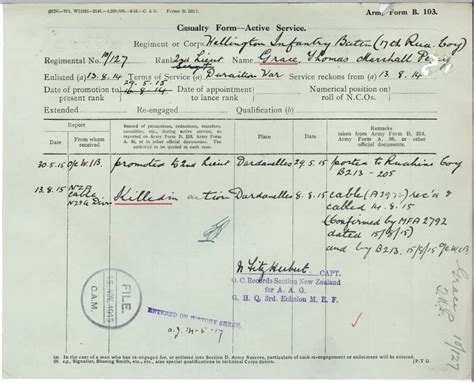 Army Form B. 103.
Casualty Form—Active Service.
Regiment or Corps Wellington Infantry Battn (17th Rua. Coy)
Regimental No. 10/127 Rank 2nd Lieut Sergt Name Grace, Thomas Marshall Percy
Enlisted (a) 13.8.14 Terms of Service (a) Duration War Service reckons from (a) 13.8.14
Date of promotion to present rank 29.5.15 16.8.14 Date of appointment to lance rank Numerical position on roll of N.C.Os.
Extended Re-engaged Qualification (b)
Report
Date From whom received
Record of promotions, reductions, transfers, casualties, etc., during active service, as reported on Army Form B. 213, Army Form A. 36, or in other official documents. The authority to be quoted in each case.
Place
Date
Remarks
taken from Army Form B. 213, Army Form A. 36, or other official documents.
30.5.15 promoted to 2nd Lieut Dardanelles 29.5.15 posted to Ruahine Coy
B213 - 205
13.8.15 NZA Cable Killed in action Dardanelles 8.8.15 cable (A2972) rec'd &
called 14.8.15
(Confirmed by MFA 2792
dated 15/8/15)
and by B213. 15/8/15
FILE.
1915
C.A.M.
N FitzHerbert CAPT.
O.C. Records Section New Zealand
for A. A. G.
G. H. Q. 3rd. Echelon M. E. F.
ENTERED ON HISTORY SHEET.
Grace
10/127
(a) In the case of a man who has re-engaged for, or enlisted into Section D. Army Reserve, particulars of such re-engagement or enlistment will be entered.
(b) e.g., Signaller, Shoeing Smith, etc., etc., also special qualifications in technical Corps duties.
[P.T.O.